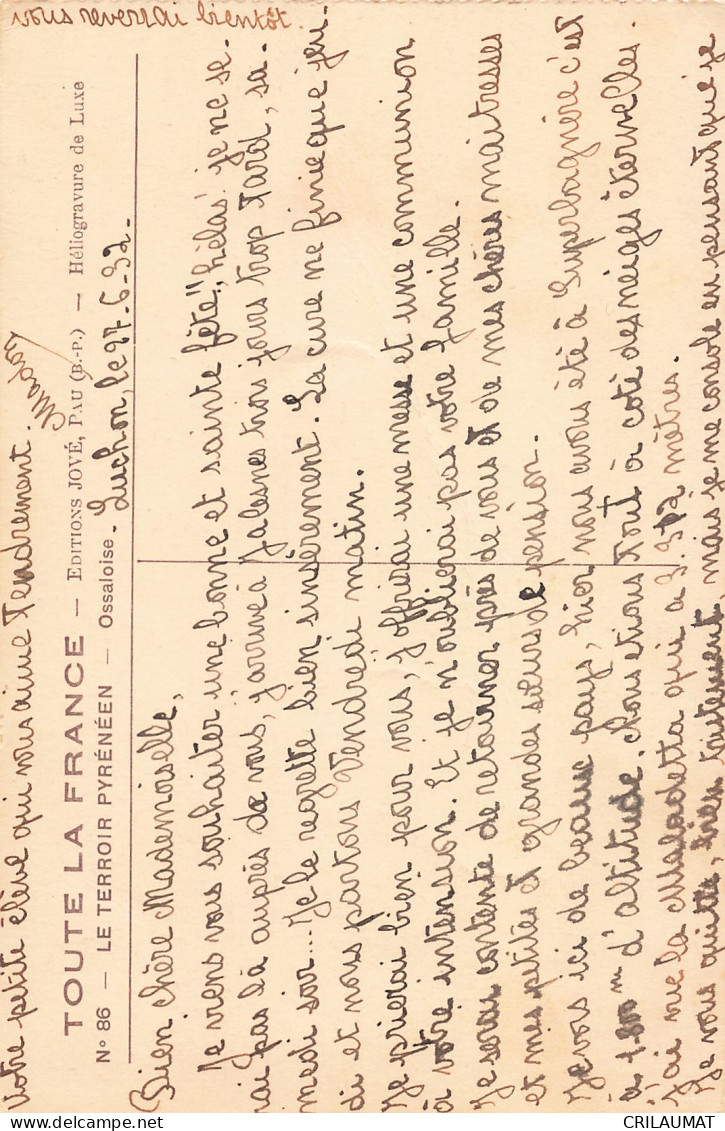 TOUTE LA FRANCE — EDITIONS JOVÉ, PAU (B.-P.) — Héliogravure de Luxe
N° 86 — LE TERROIR PYRÉNÉEN — Ossaloise - Luchon, le 27-6-32.
Bien chère Mademoiselle,
Je viens vous souhaiter une bonne et sainte fête", hélas! je ne se-
rai pas là auprès de vous, j'arrive à Jalesnes trois jours trop tard, sa-
medi soir... Je le regrette bien insèrement. La cure ne finie que jeu-
di et nous partons Vendredi matin.
Je prierai bien pour vous, j'offrirai une messe et une communion
à votre intension. Et je n'oublierai pas votre famille.
Je serai contente de retourner près de vous et de mes chères maitresses
et mes petites et grandes sœurs de pension.
Je vois ici de beaux pays, hier nous avons été à Superbagnère c'est
à 1.800 m d'altitude. Nous étions tout à coté des neiges éternelles.
J'ai vue la Maladetta qui a 3.312 mètres.
Je vous quitte, bien tristement, mais je me console en pensant que je
vous reverrai bientôt.
Votre petite élève qui vous aime tendrement.
Madey
CRILAUMAT